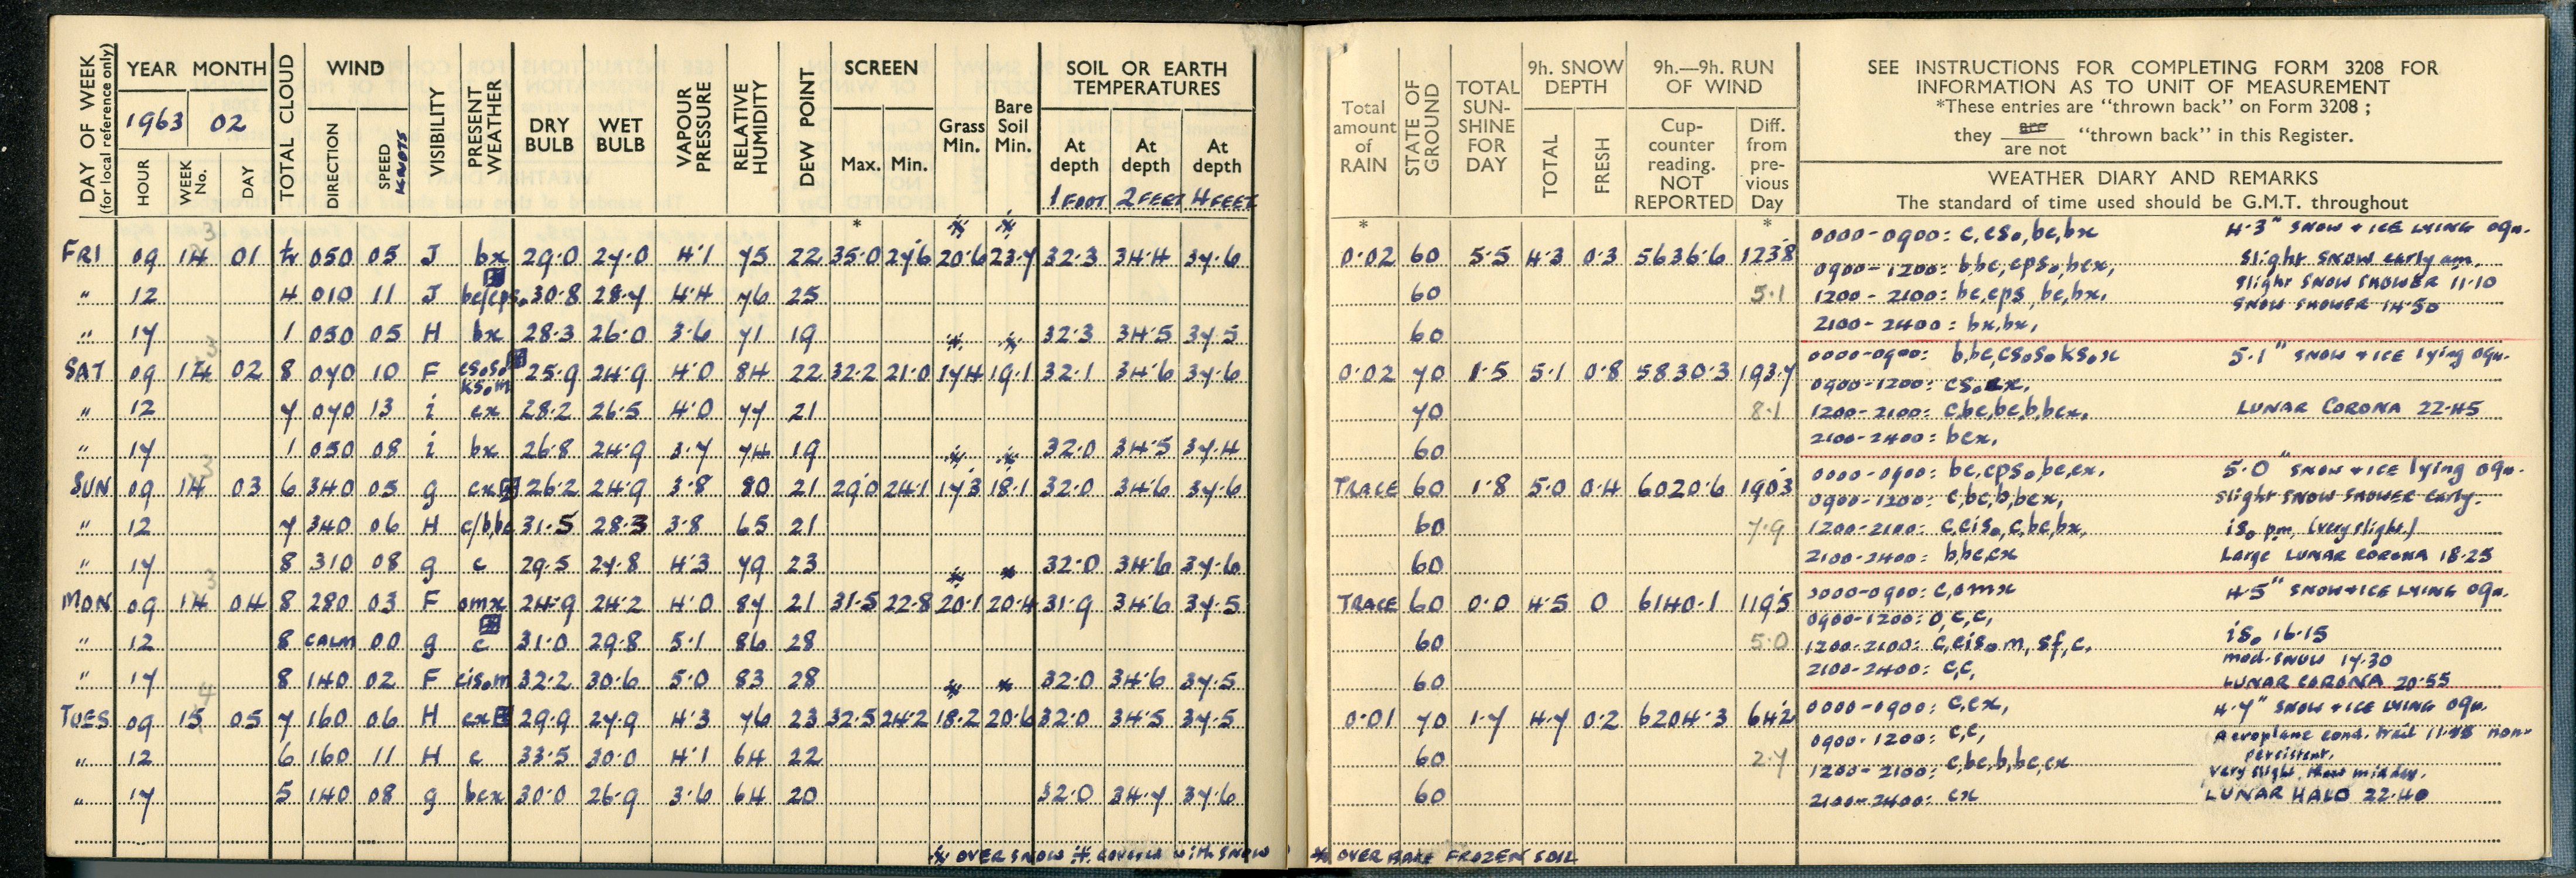 DAY OF WEEK (for local reference only)
YEAR MONTH
1963 02
HOUR WEEK No. DAY
TOTAL CLOUD
WIND
DIRECTION SPEED KNOTS
VISIBILITY
PRESENT WEATHER
DRY BULB
WET BULB
VAPOUR PRESSURE
RELATIVE HUMIDITY
DEW POINT
SCREEN
Max. Min.
Grass Min.
Bare Soil Min.
SOIL OR EARTH TEMPERATURES
At depth At depth At depth
1 FOOT 2 FEET 4 FEET
FRI 09 14 01 tr 050 05 J bx 29.0 27.0 4.1 75 22 35.0 27.6 20.6 23.7 32.3 34.4 37.6
" 12 4 010 11 J bc/cps₀ 30.8 28.7 4.4 76 25
" 17 1 050 05 H bx 28.3 26.0 3.6 71 19 32.3 34.5 37.5
SAT 09 14 02 8 070 10 F cs₀s₀ ks₀m 25.9 24.9 4.0 84 22 32.2 21.0 17.4 19.1 32.1 34.6 37.6
" 12 7 070 13 i cx 28.2 26.5 4.0 77 21
" 17 1 050 08 i bx 26.8 24.9 3.7 74 19 32.0 34.5 37.4
SUN 09 14 03 6 340 05 g cx 26.2 24.9 3.8 80 21 29.0 24.1 17.3 18.1 32.0 34.6 37.6
" 12 7 340 06 H c/b,bc 31.5 28.3 3.8 65 21
" 17 8 310 08 g c 29.5 27.8 4.3 79 23 32.0 34.6 37.6
MON 09 14 04 8 280 03 F omx 24.9 24.2 4.0 87 21 31.5 22.8 20.1 20.4 31.9 34.6 37.5
" 12 8 CALM 00 g c 31.0 29.8 5.1 86 28
" 17 8 140 02 F cis₀m 32.2 30.6 5.0 83 28 32.0 34.6 37.5
TUES 09 15 05 7 160 06 H cx 29.9 27.9 4.3 76 23 32.5 24.2 18.2 20.6 32.0 34.5 37.5
" 12 6 160 11 H c 33.5 30.0 4.1 64 22
" 17 5 140 08 g bcx 30.0 26.9 3.6 64 20 32.0 34.7 37.6
OVER SNOW covered with SNOW
Total amount of RAIN
STATE OF GROUND
TOTAL SUN-SHINE FOR DAY
9h. SNOW DEPTH
TOTAL FRESH
9h.—9h. RUN OF WIND
Cup-counter reading. NOT REPORTED
Diff. from pre-vious Day
SEE INSTRUCTIONS FOR COMPLETING FORM 3208 FOR
INFORMATION AS TO UNIT OF MEASUREMENT
*These entries are "thrown back" on Form 3208 ;
they are / are not "thrown back" in this Register.
WEATHER DIARY AND REMARKS
The standard of time used should be G.M.T. throughout
0.02 60 5.5 4.3 0.3 5636.6 123.8
60 5.1
60
0000-0900: c,cs₀,bc,bx 4.3" SNOW + ICE LYING 09h.
0900-1200: b,bc,cps₀,bcx, slight SNOW early am.
1200-2100: bc,cps bc,bx, slight SNOW SHOWER 11.10
SNOW SHOWER 14.50
2100-2400: bx,bx,
0.02 70 1.5 5.1 0.8 5830.3 193.7
70 8.1
60
0000-0900: b,bc,cs₀s₀ks₀x 5.1" SNOW + ICE lying 09h.
0900-1200: cs₀cx,
1200-2100: c,bc,bc,b,bcx, LUNAR CORONA 22.45
2100-2400: bcx,
TRACE 60 1.8 5.0 0.4 6020.6 190.3
60 7.9
60
0000-0900: bc,cps₀,bc,cx, 5.0" SNOW + ICE lying 09h.
0900-1200: c,bc,b,bcx, slight SNOW SHOWER early.
1200-2100: c,cis₀,c,bc,bx, is₀ pm, (very slight)
2100-2400: b,bc,cx Large LUNAR CORONA 18.25
TRACE 60 0.0 4.5 0 6140.1 119.5
60 5.0
60
0000-0900: c,omx 4.5" SNOW + ICE LYING 09h.
0900-1200: o,c,c,
1200-2100: c,cis₀m, sf,c, is₀ 16.15
mod. SNOW 17.30
2100-2400: c,c, LUNAR CORONA 20.55
0.01 70 1.7 4.7 0.2 6204.3 64.2
60 2.7
60
0000-0900: c,cx, 4.7" SNOW + ICE LYING 09h.
0900-1200: c,c, Aeroplane cond. trail non-persistent.
1200-2100: c,bc,b,bc,cx very slight thaw midday.
2100-2400: cx LUNAR HALO 22.40
OVER BARE FROZEN SOIL